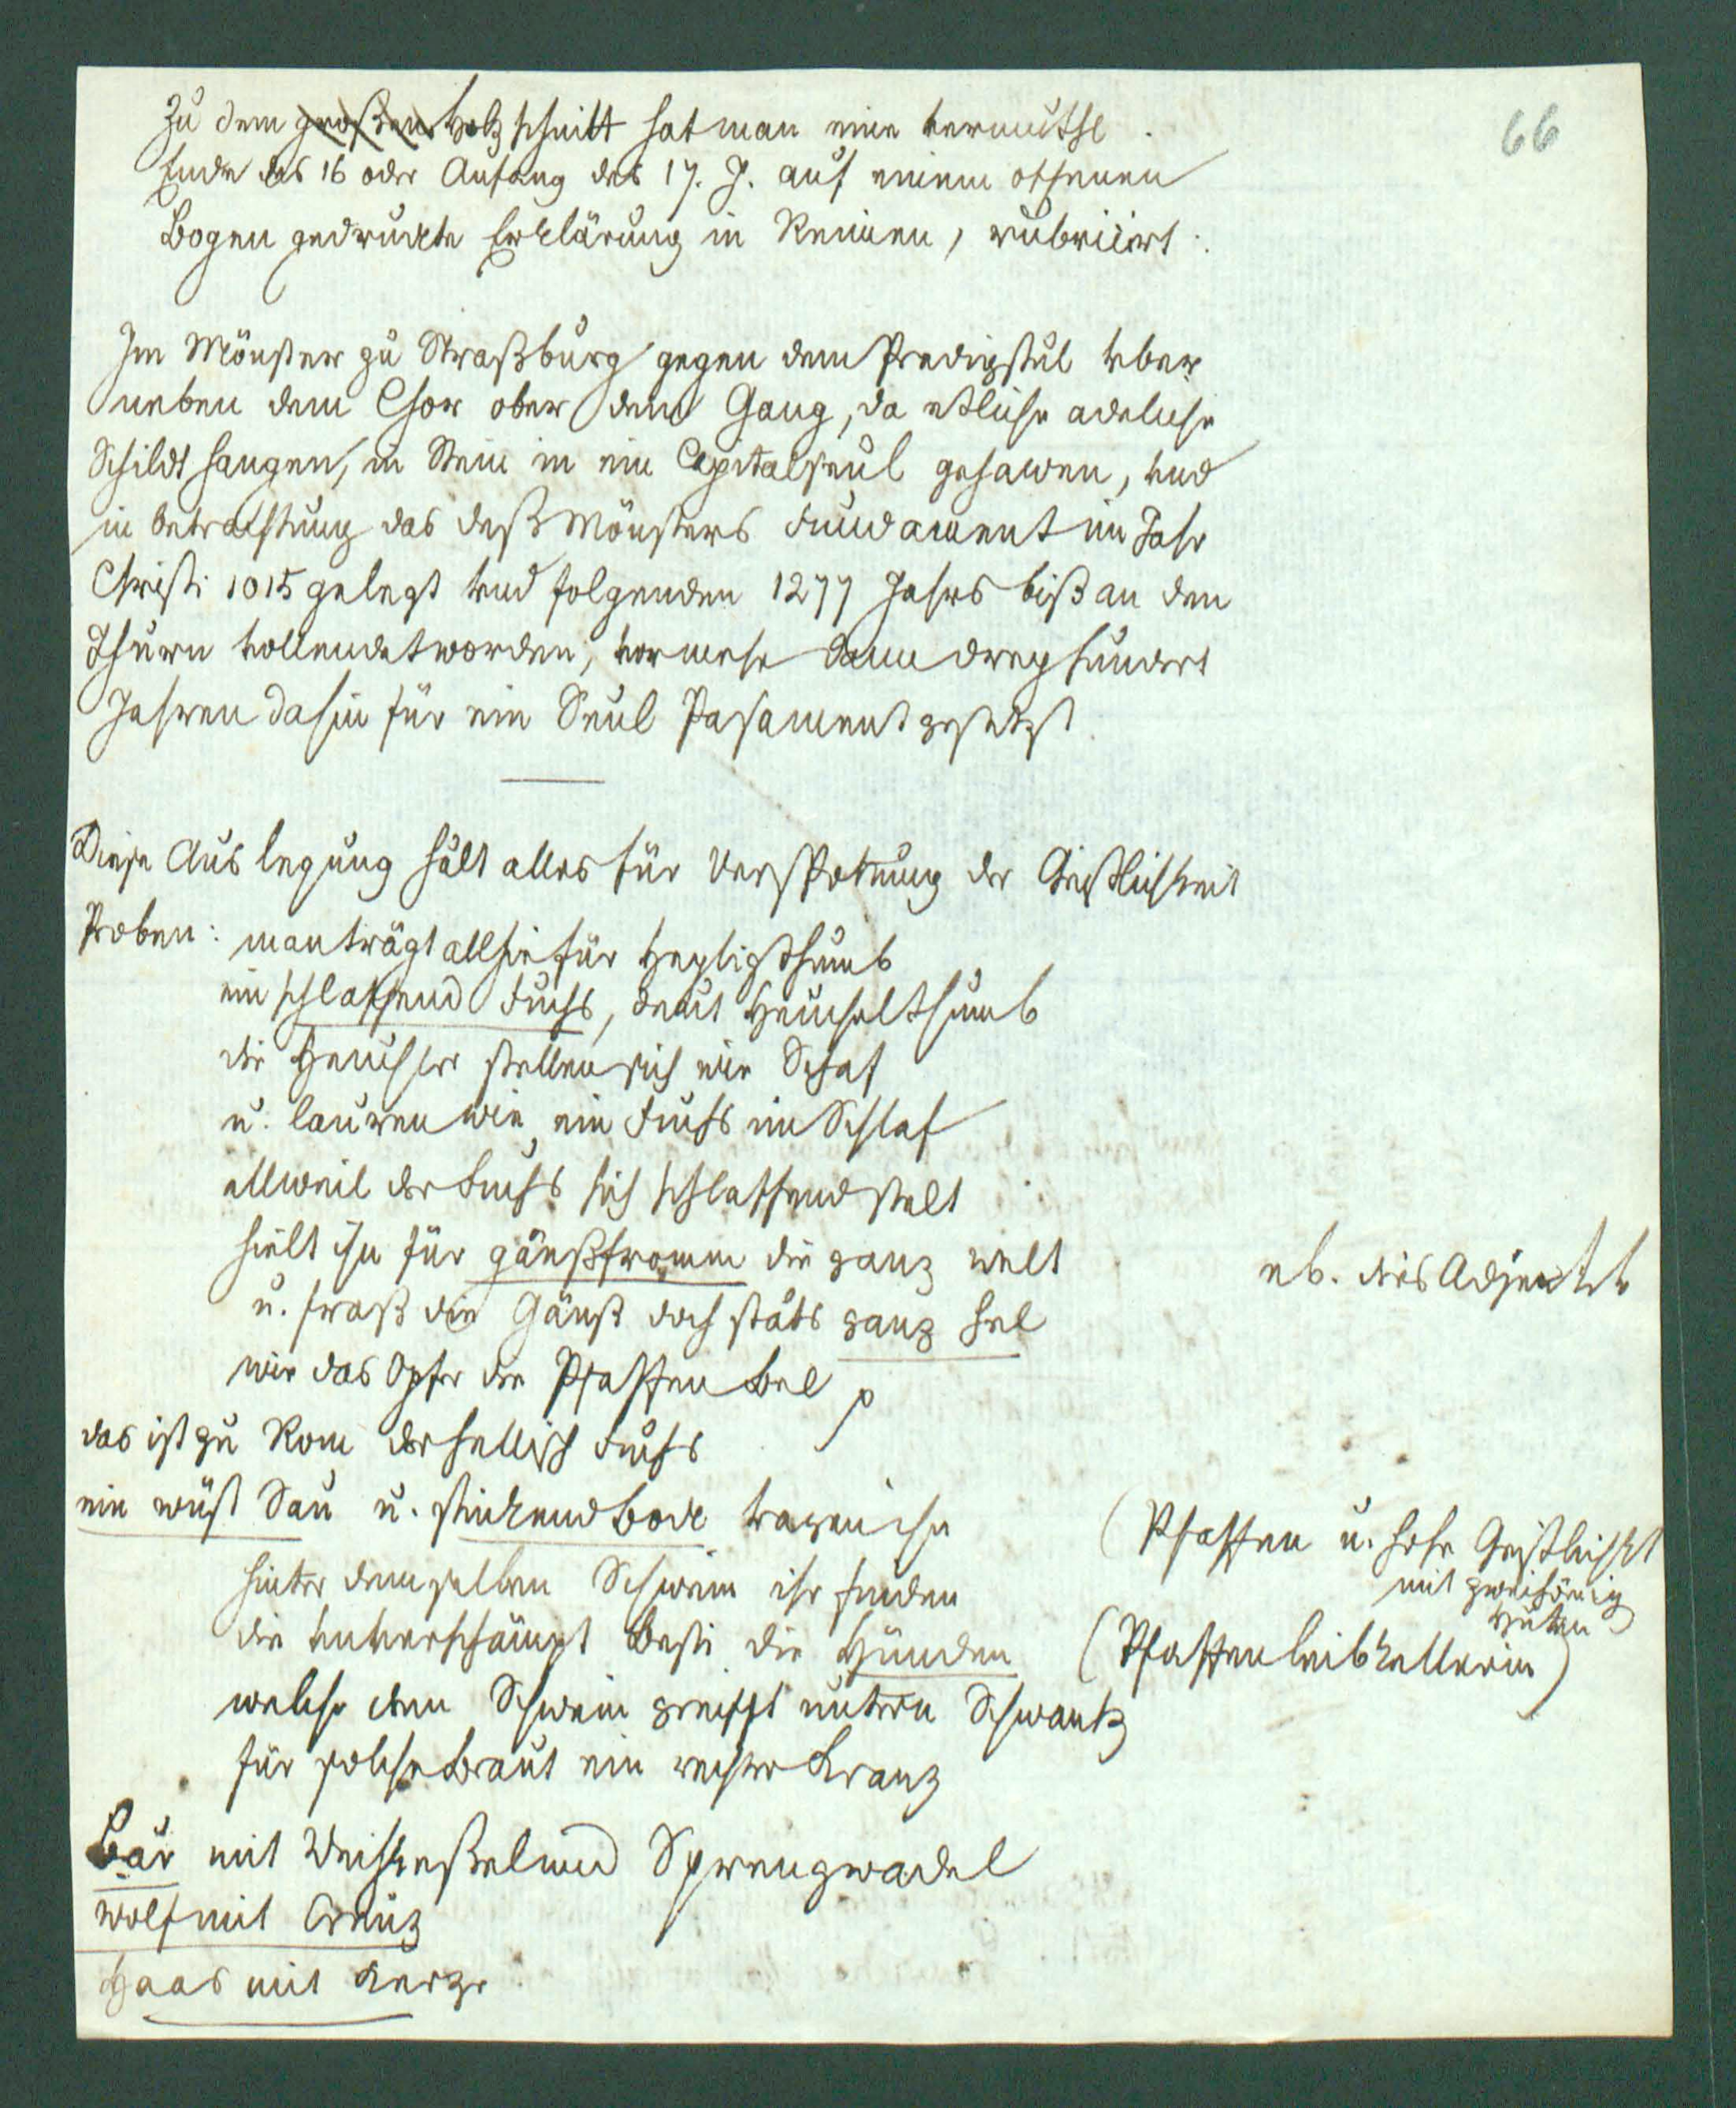 66
Zu dem großen Holzschnitt hat man eine vermuthl.
Ende des 16 oder Anfang des 17. J. auf einem offenen
Bogen gedruckte Erklärung in Reimen, rubricirt:
Im Mönster zu Straßburg gegen dem Predigstul vber
neben dem Chor ober dem Gang, da etliche adeliche
Schildt hangen, in Stein in ein Capitalseul gehawen, vnd
in betrachtung das deß Mönsters Fundament im Jahr
Christi 1015 gelegt vnd folgenden 1277 Jahrs biß an den
Thurn vollendet worden, vor mehr dann dreyhundert
Jahren dahin für ein Seul Pasament gesetzt.
Diese Auslegung hält alles für Verspottung der Geistlichkeit
Proben: man trägt allhie für Heyligthumb
ein schlaffend Fuchs, deut Heuchelthumb
die Heuchler stellen sich wie Schaf
u. lauren wie ein Fuchs im Schlaf
allweil der Fuchs sich schlaffend stelt
hielt ihn für gänßfromm die ganz welt
nb. dies Adject.
u. fraß die Gänß doch stäts ganz hel
wie das Opfer die Pfaffen Bel p
das ist zu Rom der hellisch Fuchs
ein wüst Sau u. stinkend Bock tragen ihn
(Pfaffen u. hohe Geistlichkt
mit zweihörnig
Hüten)
hinter demselben Schwein ihr finden
die vnverschämpt Besti die Hünden
(Pfaffenleibkellerin)
welche dem Schwein greifft untern Schwantz
für solche Braut ein rechter Kranz
Bär mit Weihkeßel und Sprengwadel
Wolf mit Creuz
Haas mit Kerze